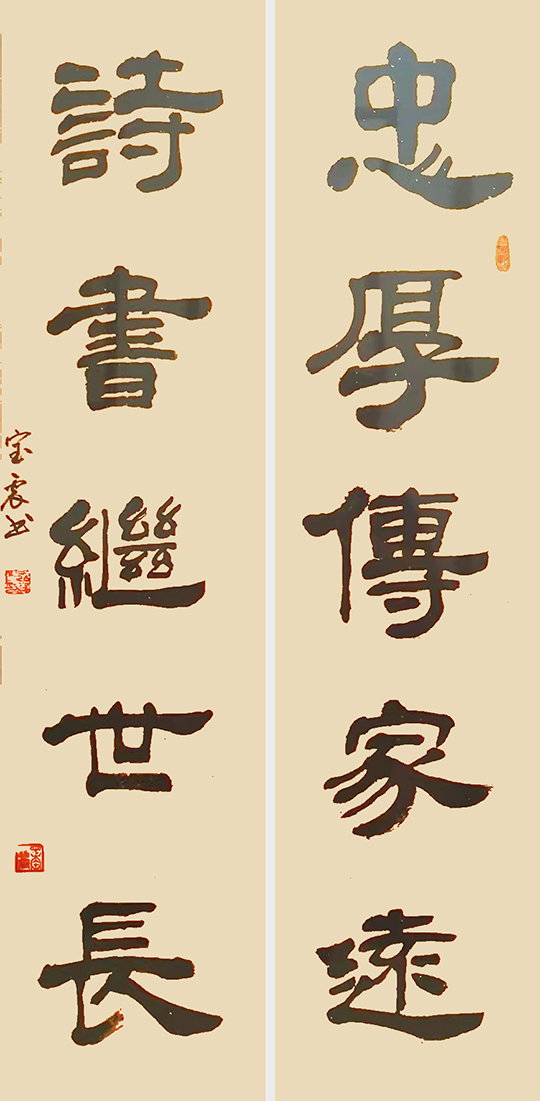 忠厚傳家遠
詩書繼世長
宝震书